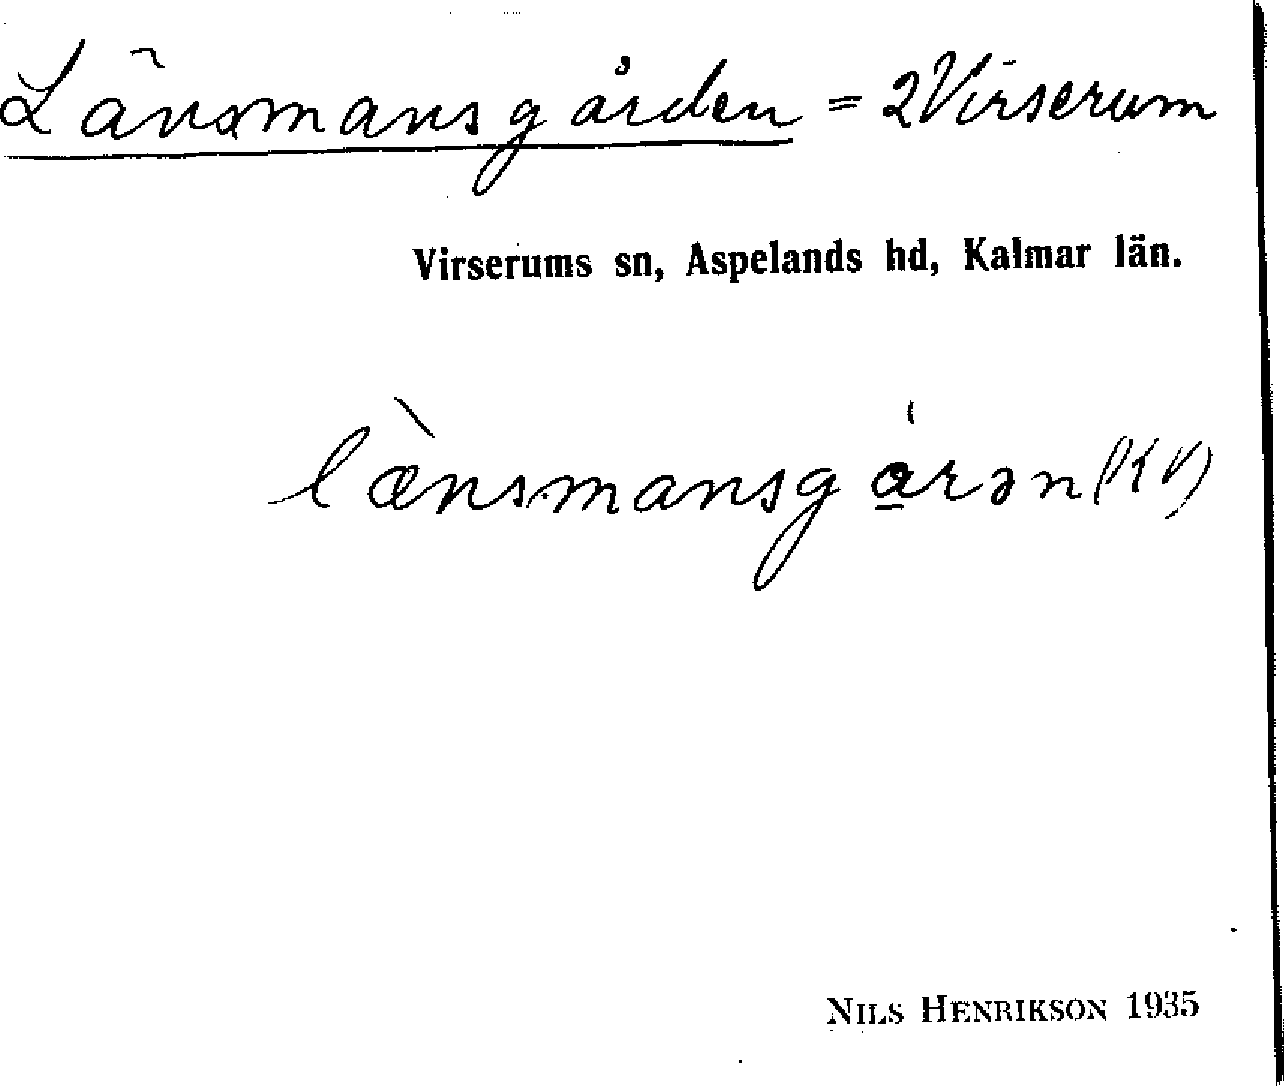 Länsmansgården = 2 Virserum
Virserums sn, Aspelands hd, Kalmar län.
læ̀nsmansgå̲rən (KV)
NILS HENRIKSON 1935